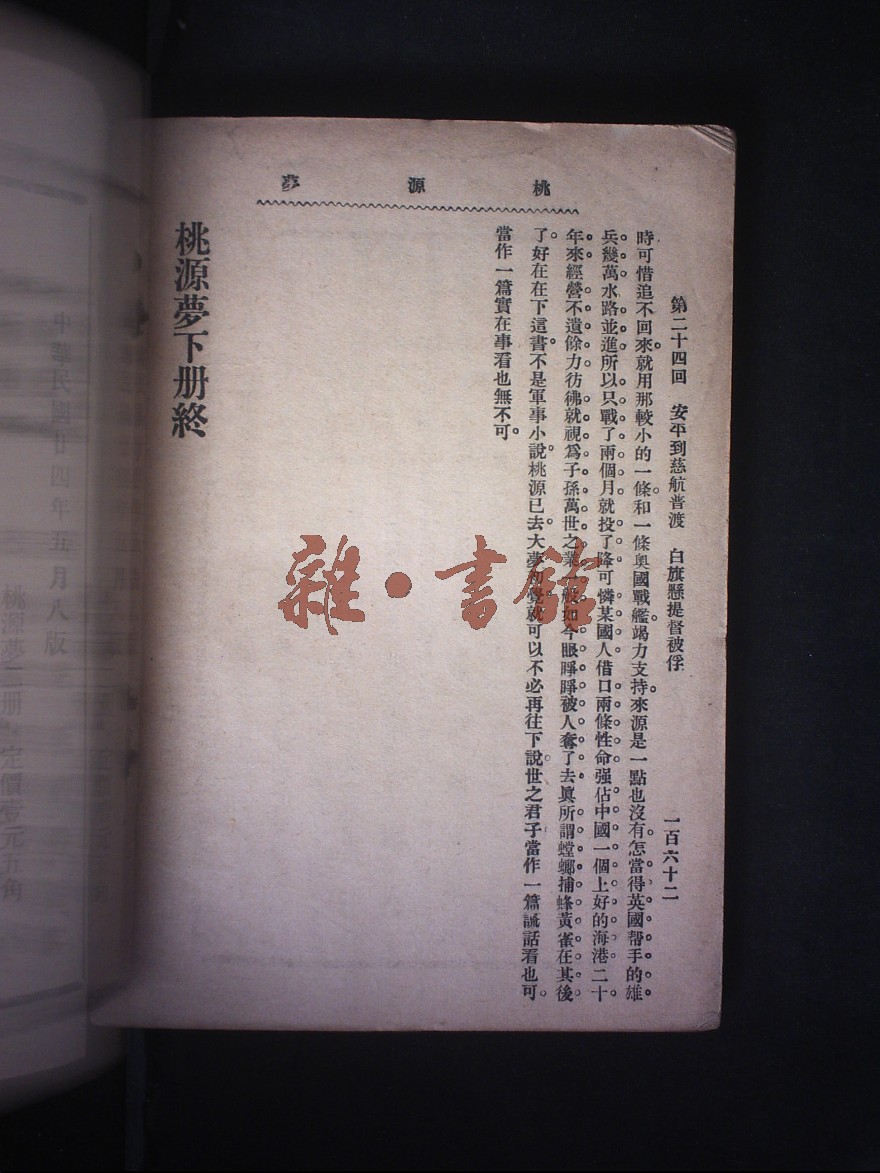 桃源夢
第二十四回　安平到慈航普渡　白旗懸提督被俘　一百六十二
時可惜追不回來。就用那較小的一條。和一條奧國戰艦竭力支持。來源是一點也沒有。怎當得英國幫手的雄
兵幾萬水路並進。所以只戰了兩個月就投了降。可憐某國人借口兩條性命。强佔中國一個上好的海港。二十
年來經營不遺餘力。彷彿就視爲子孫萬世之業一般。如今眼睜睜被人奪了去。眞所謂螳螂捕蜂黃雀在其後
了。好在在下這書。不是軍事小說。桃源已去。大夢初覺。就可以不必再往下說。世之君子當作一篇誠話看也可。
當作一篇實在事看也無不可。
桃源夢下册終
中華民國廿四年五月八版
桃源夢二册　定價壹元五角
雜·書館